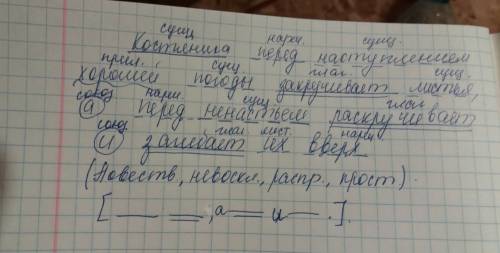 сущ. нареч. сущ.
Костяника перед наступлением
прил. сущ. глаг. сущ.
хорошей погоды закручивает листья,
союз нареч. сущ. глаг.
а перед ненастьем раскручивает
союз глаг. мест. нареч.
и загибает их вверх
(Повеств., невоскл., распр., прост).
[ , а и . ].